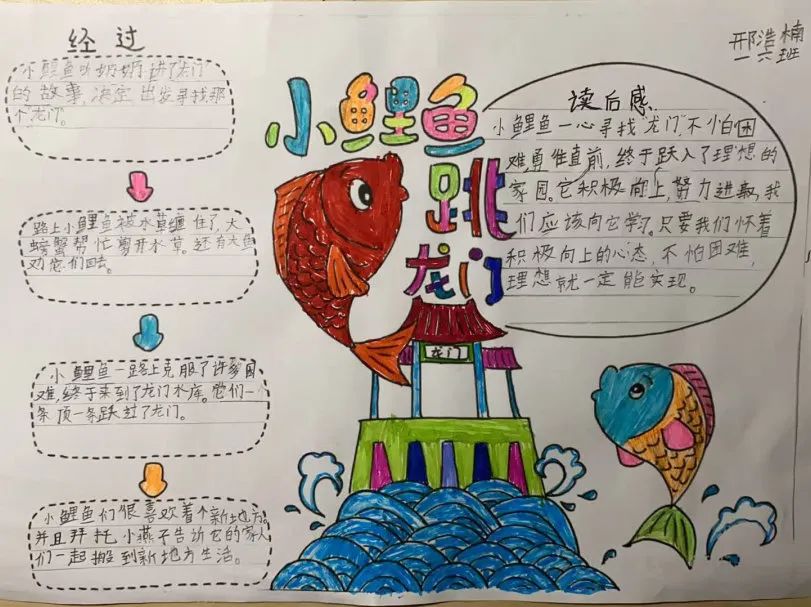 经过
小鲤鱼听奶奶讲了龙门
的故事,决定出发寻找那
个龙门。
路上小鲤鱼被水草缠住了,大
螃蟹帮忙剪开水草。还有大鱼
劝您们回去。
小鲤鱼一路上克服了许多困
难,终于来到了龙门水库。它们一个
条顶一条跃过了龙门。
小鲤鱼们很喜欢着个新地方。
并且拜托小燕子告诉它的家人
们一起搬到新地方生活。
小鲤鱼
跳
龙门
龙门
邢浩楠
一六班
读后感
小鲤鱼一心寻找"龙门"不怕困
难勇往直前,终于跃入了理想的
家园。它积极向上,努力进取,我
们应该向它学习。只要我们怀着
积极向上的心态,不怕困难,
理想就一定能实现。